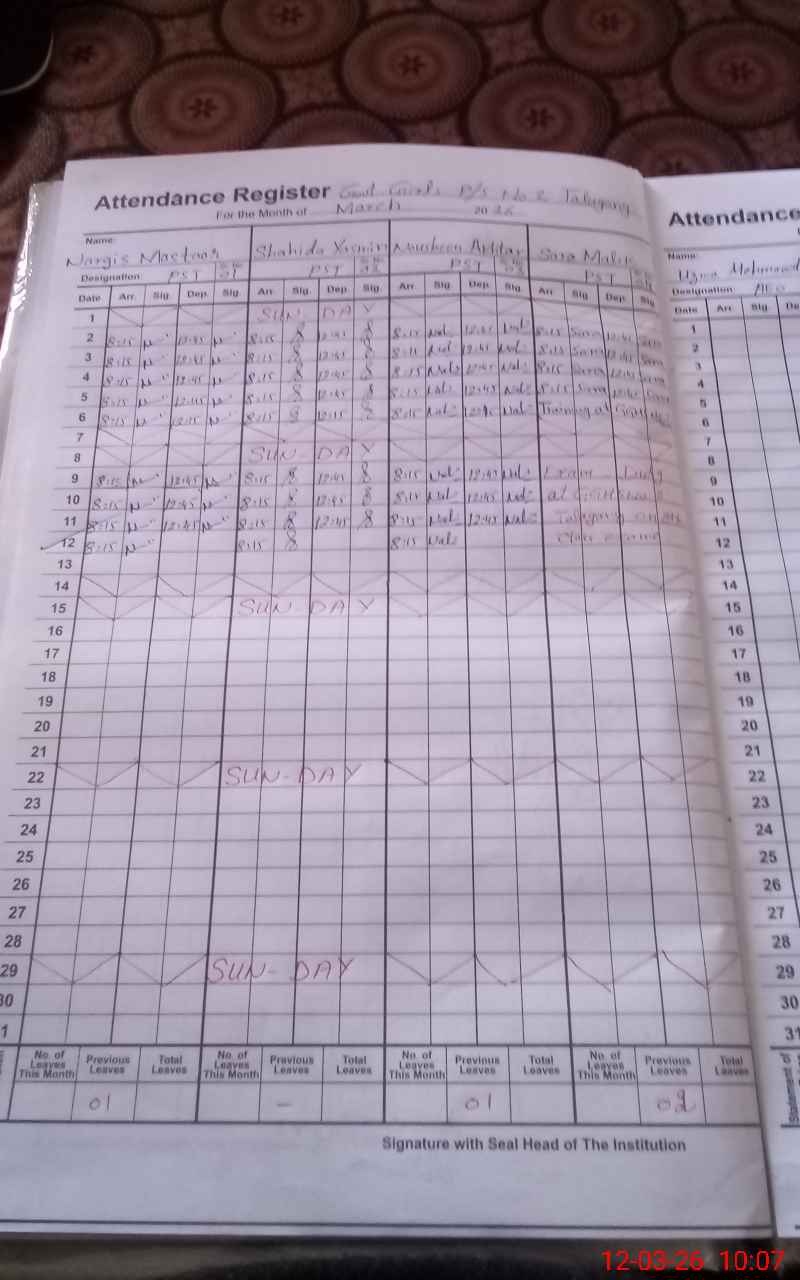 Attendance Register Govt Girls P/S No 2 Talagang
For the Month of March 2026
Name: Nargis Mastoor Shahida Yasmin Nousheen Akhtar Sara Malik
Designation: PST PST PST PST
Date Arr. Sig. Dep. Sig. Arr. Sig. Dep. Sig. Arr. Sig. Dep. Sig. Arr. Sig. Dep. Sig.
1 SUN DAY
2 8:15 12:45 8:15 12:45 8:15 12:45 8:15 Sara 12:45 Sara
3 8:15 12:45 8:15 12:45 8:15 12:45 8:15 Sara 12:45 Sara
4 8:15 12:45 8:15 12:45 8:15 12:45 8:15 Sara 12:45 Sara
5 8:15 12:45 8:15 12:45 8:15 12:45 8:15 Sara 12:45 Sara
6 8:15 12:15 8:15 12:15 8:15 Training at
7
8 SUN DAY
9 8:15 12:45 8:15 12:45 8:15 12:45 Exam Duty
10 8:15 12:45 8:15 12:45 8:15 12:45 at
11 8:15 12:45 8:15 12:45 8:15 12:45 Talagang
12 8:15 8:15 8:15 Class exams
13
14
15 SUN-DAY
16
17
18
19
20
21
22 SUN-DAY
23
24
25
26
27
28
29 SUN-DAY
30
1
No. of Leaves This Month Previous Leaves Total Leaves No. of Leaves This Month Previous Leaves Total Leaves No. of Leaves This Month Previous Leaves Total Leaves No. of Leaves This Month Previous Leaves Total Leaves
01 - 01 02
Signature with Seal Head of The Institution
Attendance
Name:
Designation
Date Arr. Sig. Dep
1
2
3
4
5
6
7
8
9
10
11
12
13
14
15
16
17
18
19
20
21
22
23
24
25
26
27
28
29
30
31
Statement of
12-03-26 10:07